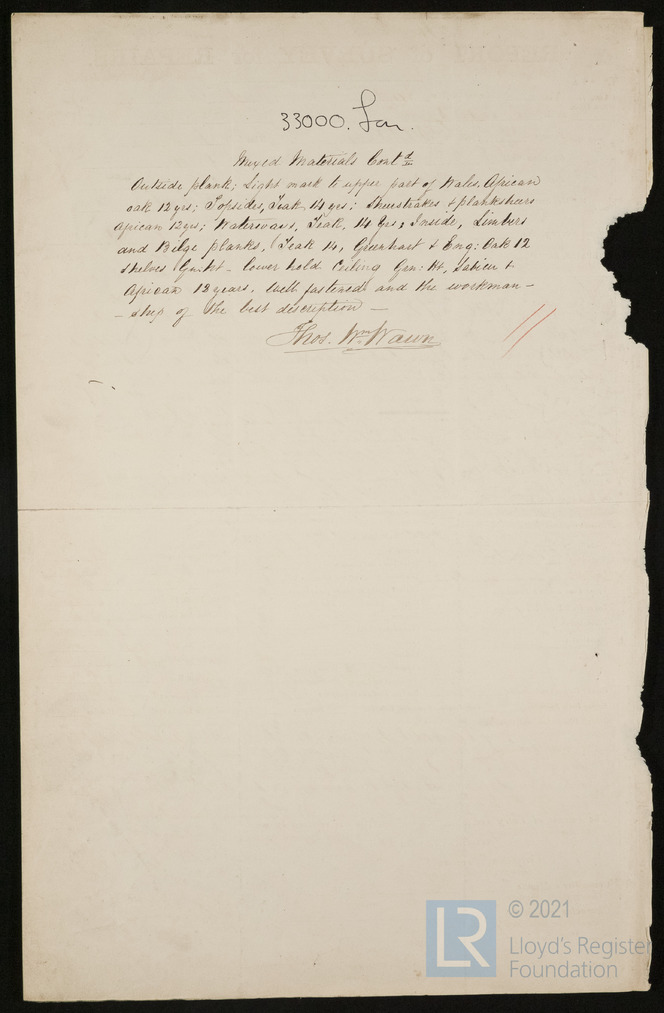 33000. Lon.
Mixed Materials Contd
Outside plank; Light mark to upper part of Wales, African
oak 12 yrs; Topsides, Teak 14 yrs; Sheerstrakes & plansheers
African 12 yrs; Waterways, Teak, 14 Yrs; Inside, Limbers
and Bilge planks, Teak 14, Greenhart & Eng: Oak 12
Shelves Gn: ht - lower hold Ceiling Gen: Ht, Sabicu &
African 12 years. Well fastened and the workman -
- ship of the best description -
Thos. Wm Wawn
© 2021
LR
Lloyd's Register
Foundation